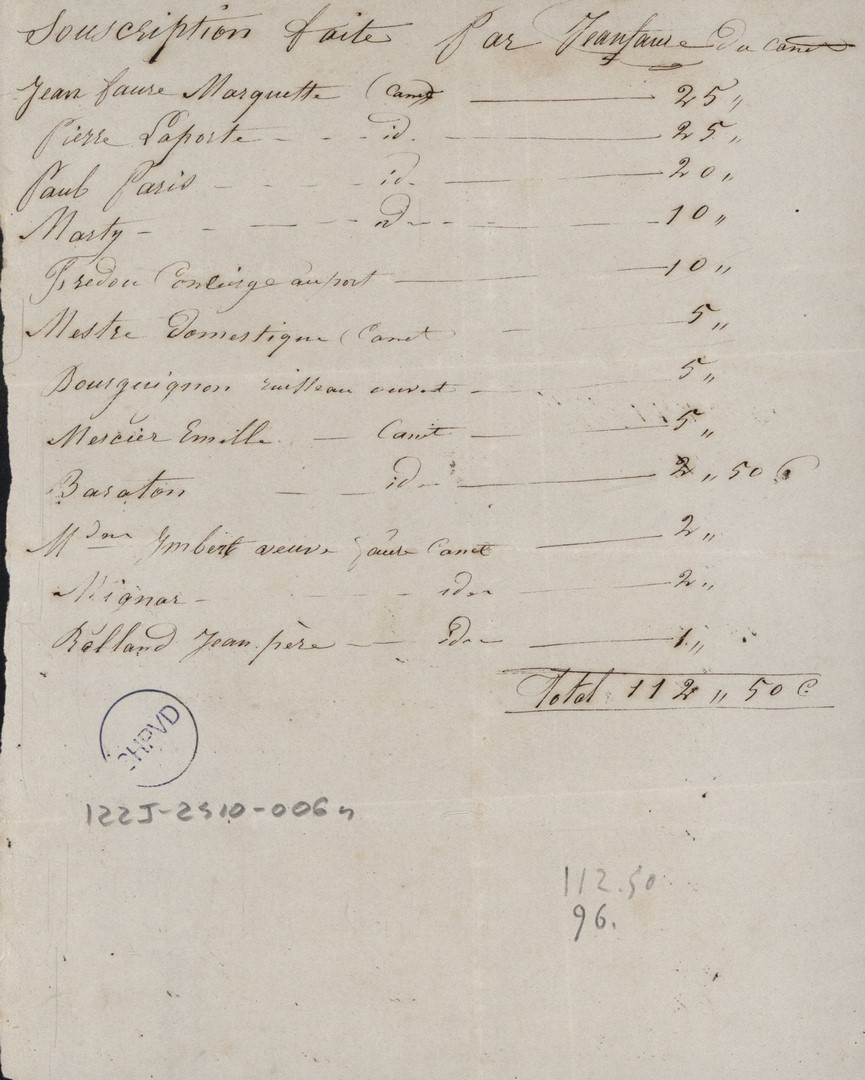 Souscription faite Par Jean faure du canet
Jean faure Marquette (Canet) 25 "
Pierre Laporte - - - id. - 25 "
Paul Paris - - - id. 20 "
Marty - - - - id - - 10 "
Fredou Concierge au port 10 "
Mestre Domestique (Canet - 5 "
Bourguignon ouvert - 5 "
Mercier Emille - Canet - 5 "
Baraton - - id - 2 " 50 C
Mdme Imbert veuve faure Canet 2 "
Mignar - - - id - 2 "
Rolland Jean père - id - 1 "
Total 112 " 50 C.
CHPVD
122J-2S10-006
112.50
96.